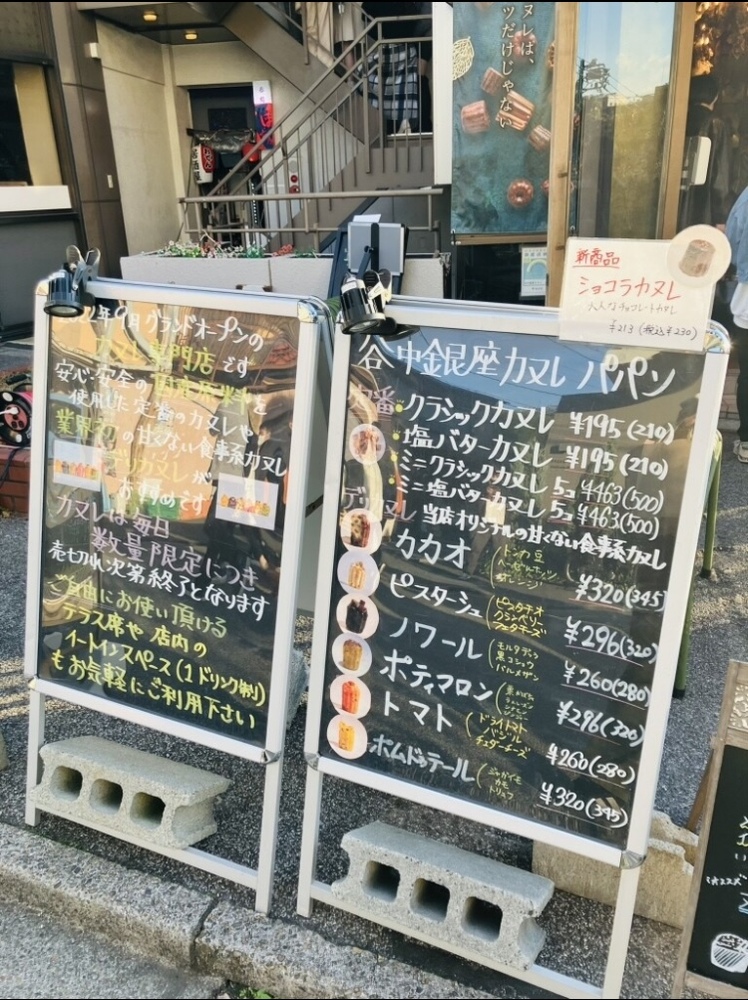 ヌレは、
ツだけじゃない
新商品
ショコラカヌレ
大人なチョコレートカヌレ
¥213(税込¥230)
2022年9月グランドオープンの
カヌレ専門店です
安心・安全の国産原料を
使用した定番のカヌレや
業界初の甘くない食事系カヌレ
デリカヌレが
おすすめです
カヌレは毎日
数量限定につき
売切れ次第終了となります
ご自由にお使い頂ける
テラス席や店内の
イートインスペース(1ドリンク制)
もお気軽にご利用下さい
谷中銀座カヌレ パパン
定番
クラシックカヌレ ¥195(210)
塩バターカヌレ ¥195(210)
ミニクラシックカヌレ 5コ ¥463(500)
ミニ塩バターカヌレ 5コ ¥463(500)
デリカヌレ 当店オリジナルの甘くない食事系カヌレ
カカオ (トンカ豆 ヘーゼルナッツ オレンジ ¥320(345)
ピスターシュ (ピスタチオ クランベリー フェタチーズ ¥296(320)
ノワール (モルタデッラ 黒コショウ パルメザン ¥260(280)
ポティマロン ¥296(320)
トマト (ドライトマト バジル チェダーチーズ ¥260(280)
ポムドゥテール (ジャガイモ カモ トリュフ ¥320(345)